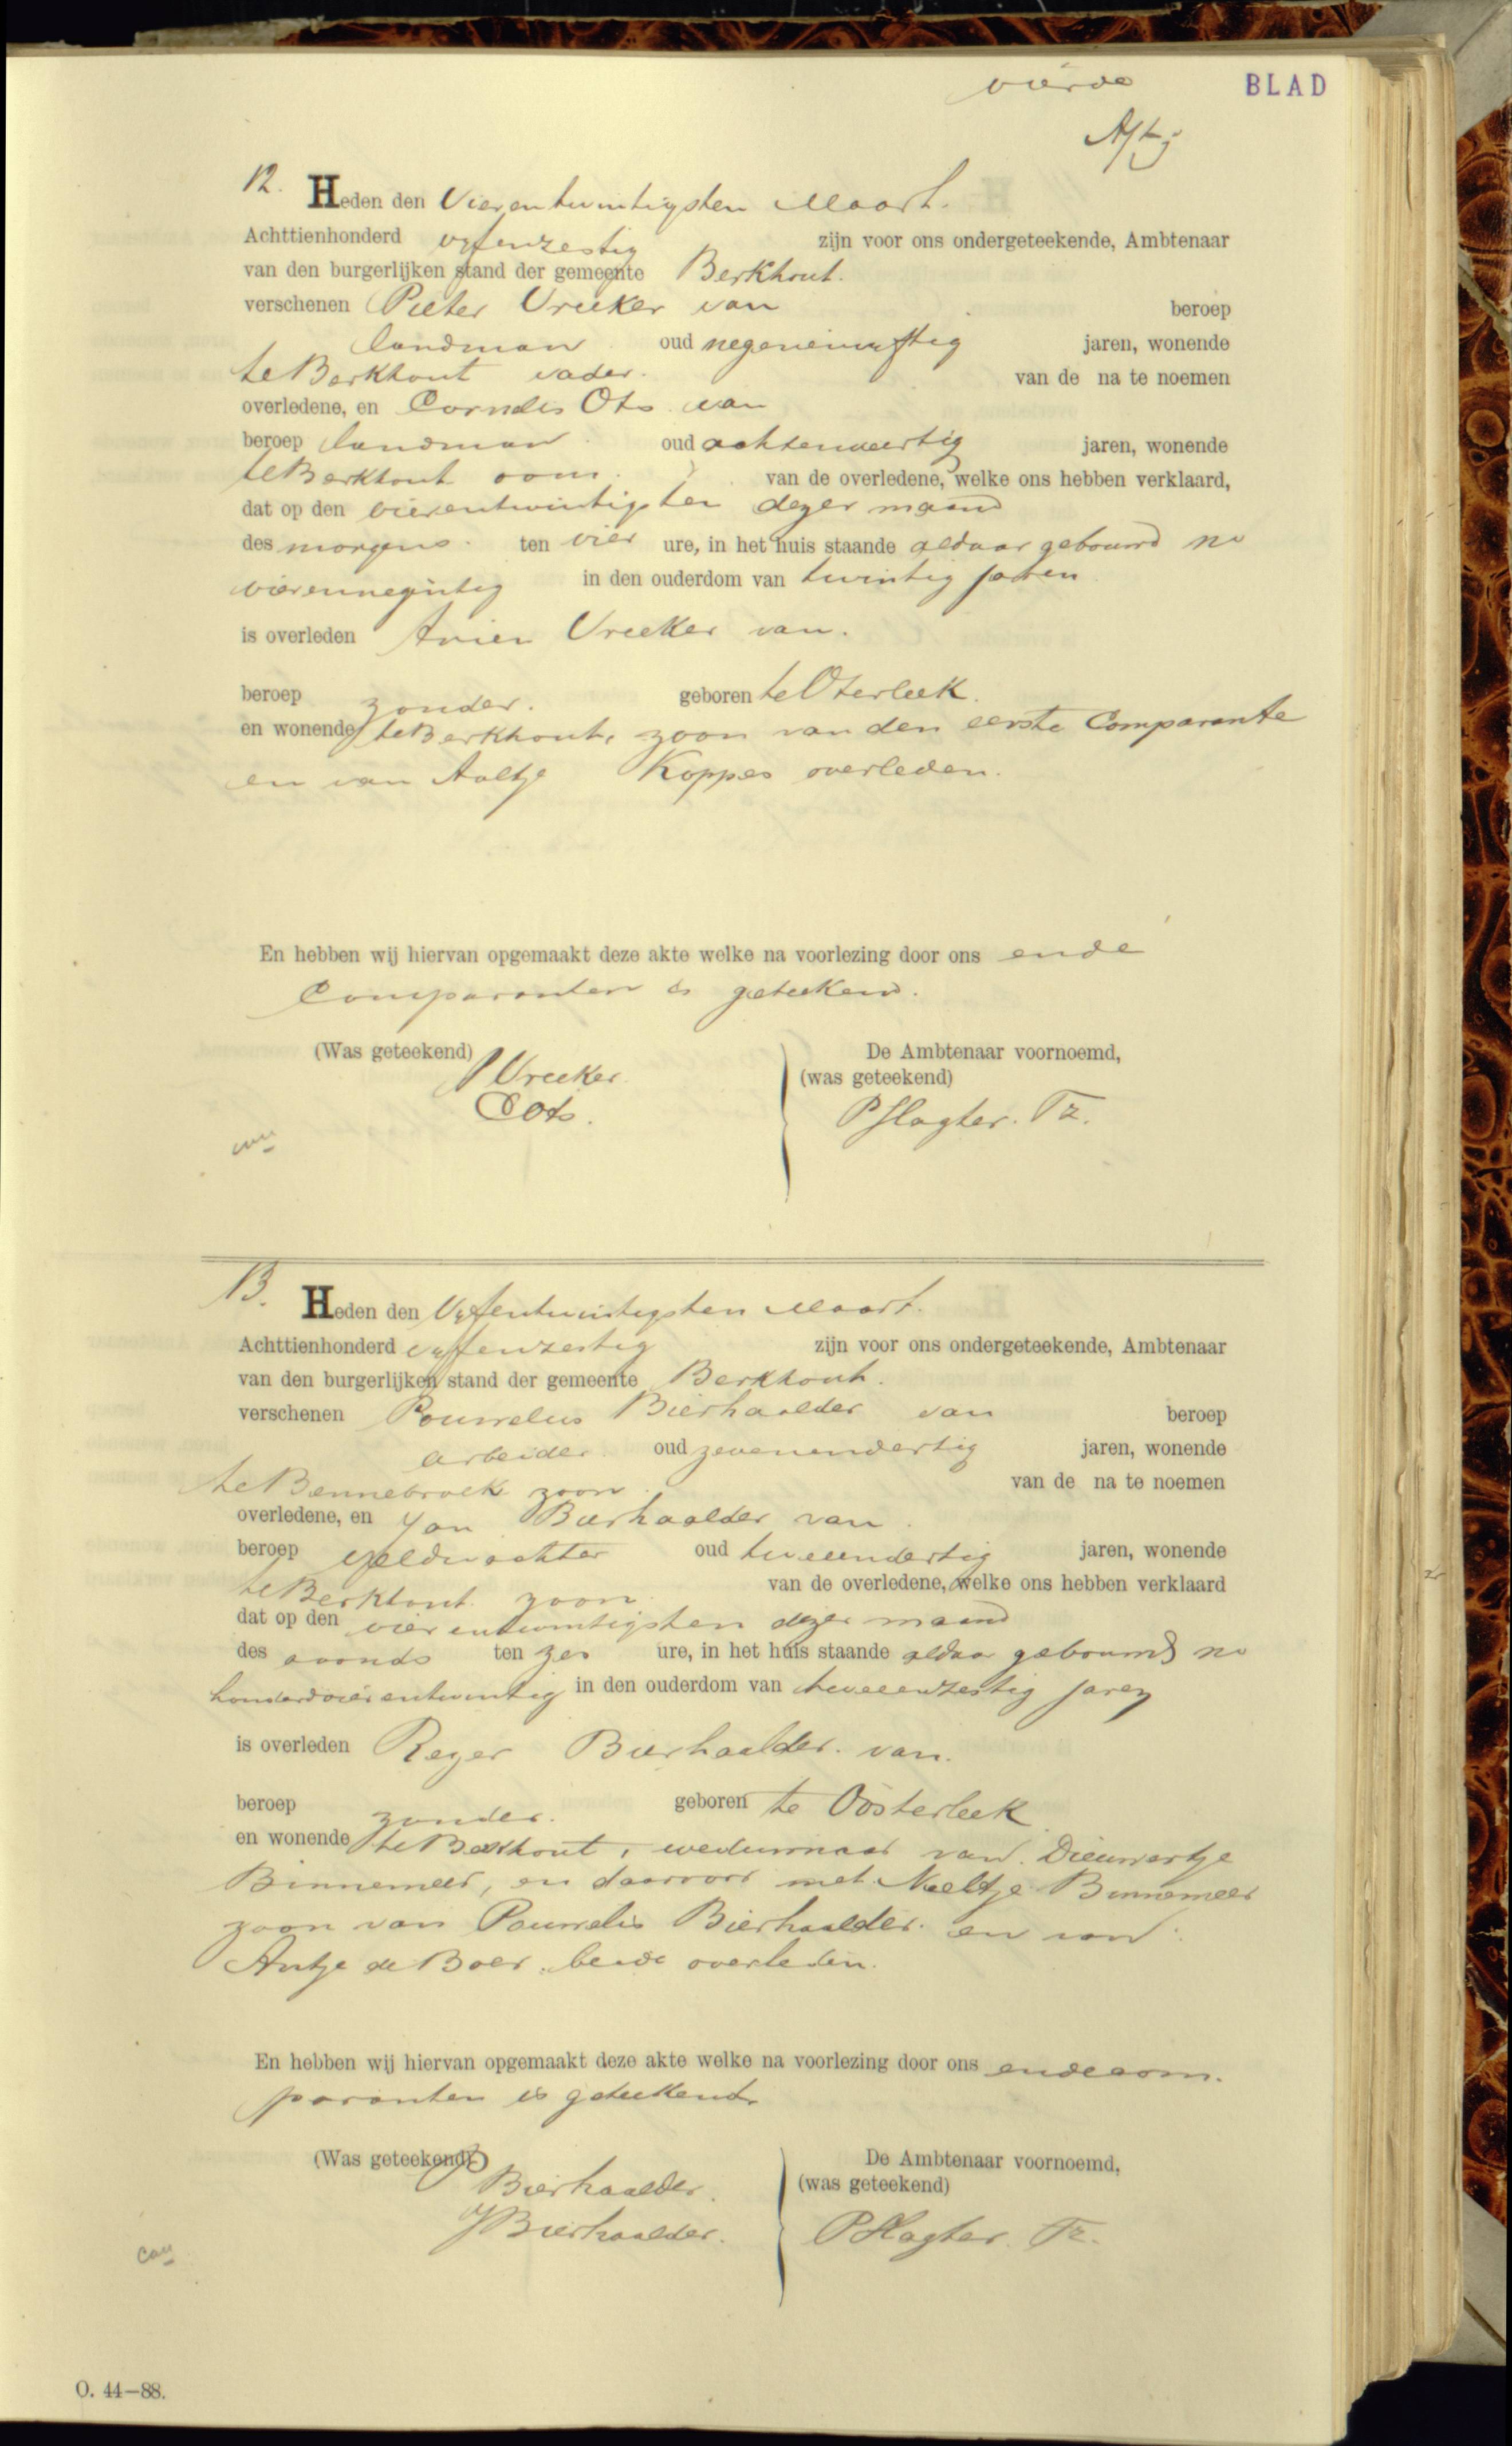 vierde BLAD
12. Heden den Vierentwintigsten Maart.
Achttienhonderd vyfenzestig zijn voor ons ondergeteekende, Ambtenaar
van den burgerlijken stand der gemeente Berkhout.
verschenen Pieter Vreeker van beroep
landman oud negenenvyftig jaren, wonende
te Berkhout vader. van de na te noemen
overledene, en Cornelis Ots van
beroep landman oud achtenveertig jaren, wonende
te Berkhout oom. van de overledene, welke ons hebben verklaard,
dat op den vierentwintigsten dezer maand
des morgens. ten vier ure, in het huis staande aldaar gebouwd no
vierennegintig in den ouderdom van twintig jaren
is overleden Arien Vreeker van.
beroep zonder. geboren te Oterleek.
en wonende te Berkhout, zoon van den eerste Comparante
en van Aaltje Koppes overleden.
En hebben wij hiervan opgemaakt deze akte welke na voorlezing door ons ende
Comparanten is geteekend.
(Was geteekend) De Ambtenaar voornoemd,
P Vreeker. (was geteekend)
C Ots. P Slagter. Tz.
13. Heden den Vyfentwintigsten Maart.
Achttienhonderd vyfenzestig zijn voor ons ondergeteekende, Ambtenaar
van den burgerlijken stand der gemeente Berkhout.
verschenen Pouwelus Bierhaalder van beroep
arbeider. oud zevenendertig jaren, wonende
te Bennebroek zoon. van de na te noemen
overledene, en Jan Bierhaalder van
beroep veldwachter oud tweeendertig jaren, wonende
te Berkhout zoon. van de overledene, welke ons hebben verklaard
dat op den vierentwintigsten dezer maand
des avonds ten zes ure, in het huis staande aldaar gebouwd no
honderdvierentwintig in den ouderdom van tweeenzestig jaren
is overleden Reyer Bierhaalder. van.
beroep zonder. geboren te Oosterleek
en wonende te Berkhout, weduwnaar van Dieuwertje
Binnemeer, en daarvoor met Neeltje Binnemeer
zoon van Pouwelis Bierhaalder. en van
Antje de Boer. beide overleden.
En hebben wij hiervan opgemaakt deze akte welke na voorlezing door ons ende com.
paranten is geteekend.
(Was geteekend) De Ambtenaar voornoemd,
P Bierhaalder. (was geteekend)
J Bierhaalder. P Slagter. Tz.
O. 44—88.